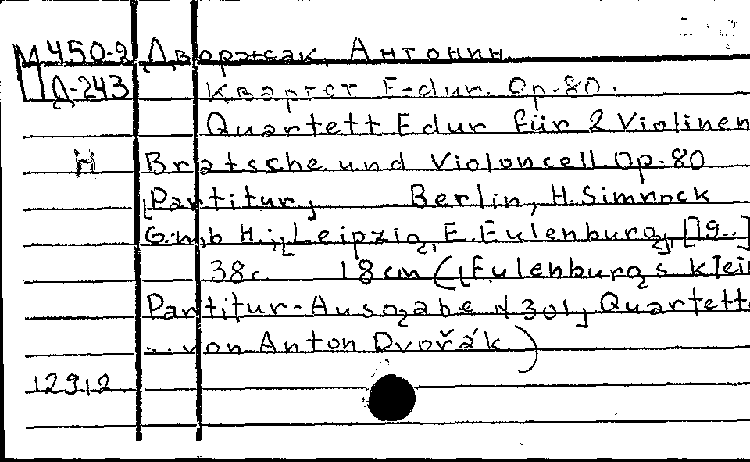 М450-2 Дворжак, Антонин.
Д-243 Квартет E-dur. Op. 80.
Quartett E dur für 2 Violinen
Н Bratsche und Violoncell Op. 80
[Partitur] Berlin, H. Simrock
G.m.b.H.; [Leipzig, E. Eulenburg, [19..]
38с. 18cm ([Eulenburgs klei
Partitur-Ausgabe N 301] Quartett
von Anton Dvořák)
12912